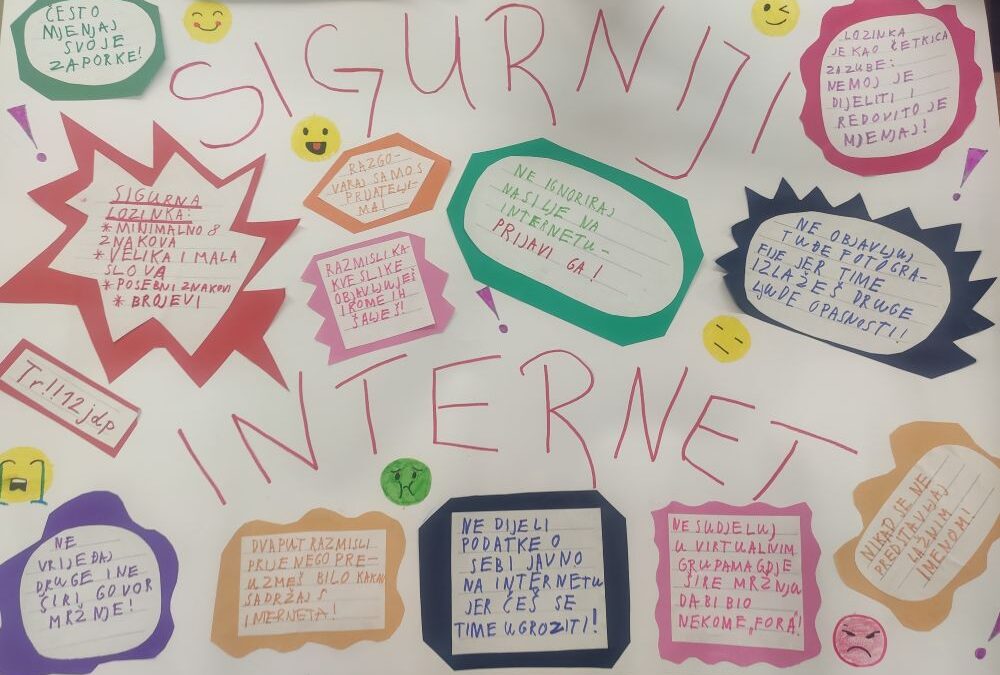 SIGURNIJI
INTERNET
ČESTO
MJENJAJ
SVOJE
ZAPORKE!
LOZINKA
JE KAO ČETKICA
ZA ZUBE:
NEMOJ JE
DIJELITI I
REDOVITO JE
MJENJAJ!
SIGURNA
LOZINKA:
* MINIMALNO 8
ZNAKOVA
* VELIKA I MALA
SLOVA
* POSEBNI ZNAKOVI
* BROJEVI
RAZGO-
VARAJ SAMO S
PRIJATELJI-
MA!
NE IGNORIRAJ
NASILJE NA
INTERNETU-
PRIJAVI GA!
NE OBJAVLJUJ
TUĐE FOTOGRA-
FIJE JER TIME
IZLAŽEŠ DRUGE
LJUDE OPASNOSTI!
RAZMISLI KA-
KVE SLIKE
OBJAVLJUJEŠ
I KOME IH
ŠALJEŠ!
Tr!!12jdp
NE
VRIJEĐAJ
DRUGE I NE
ŠIRI GOVOR
MRŽNJE!
DVAPUT RAZMISLI
PRIJE NEGO PRE-
UZMEŠ BILO KAKAV
SADRŽAJ S
INERNETA!
NE DIJELI
PODATKE O
SEBI JAVNO
NA INTERNETU
JER ĆEŠ SE
TIME UGROZITI!
NE SUDJELUJ
U VIRTUALNIM
GRUPAMA GDJE
ŠIRE MRŽNJU
DA BI BIO
NEKOME „FORA"!
NIKAD SE NE
PREDSTAVLJAJ
LAŽNIM
IMENOM!